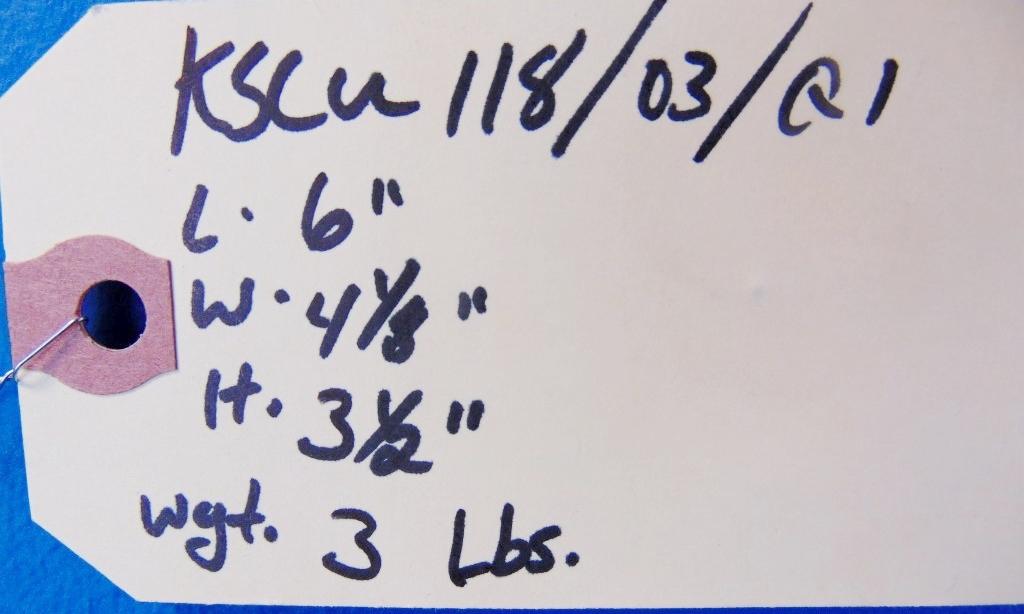 KSCU 118/03/Q1
L. 6"
W. 4 1/8"
H. 3 1/2"
Wgt. 3 Lbs.